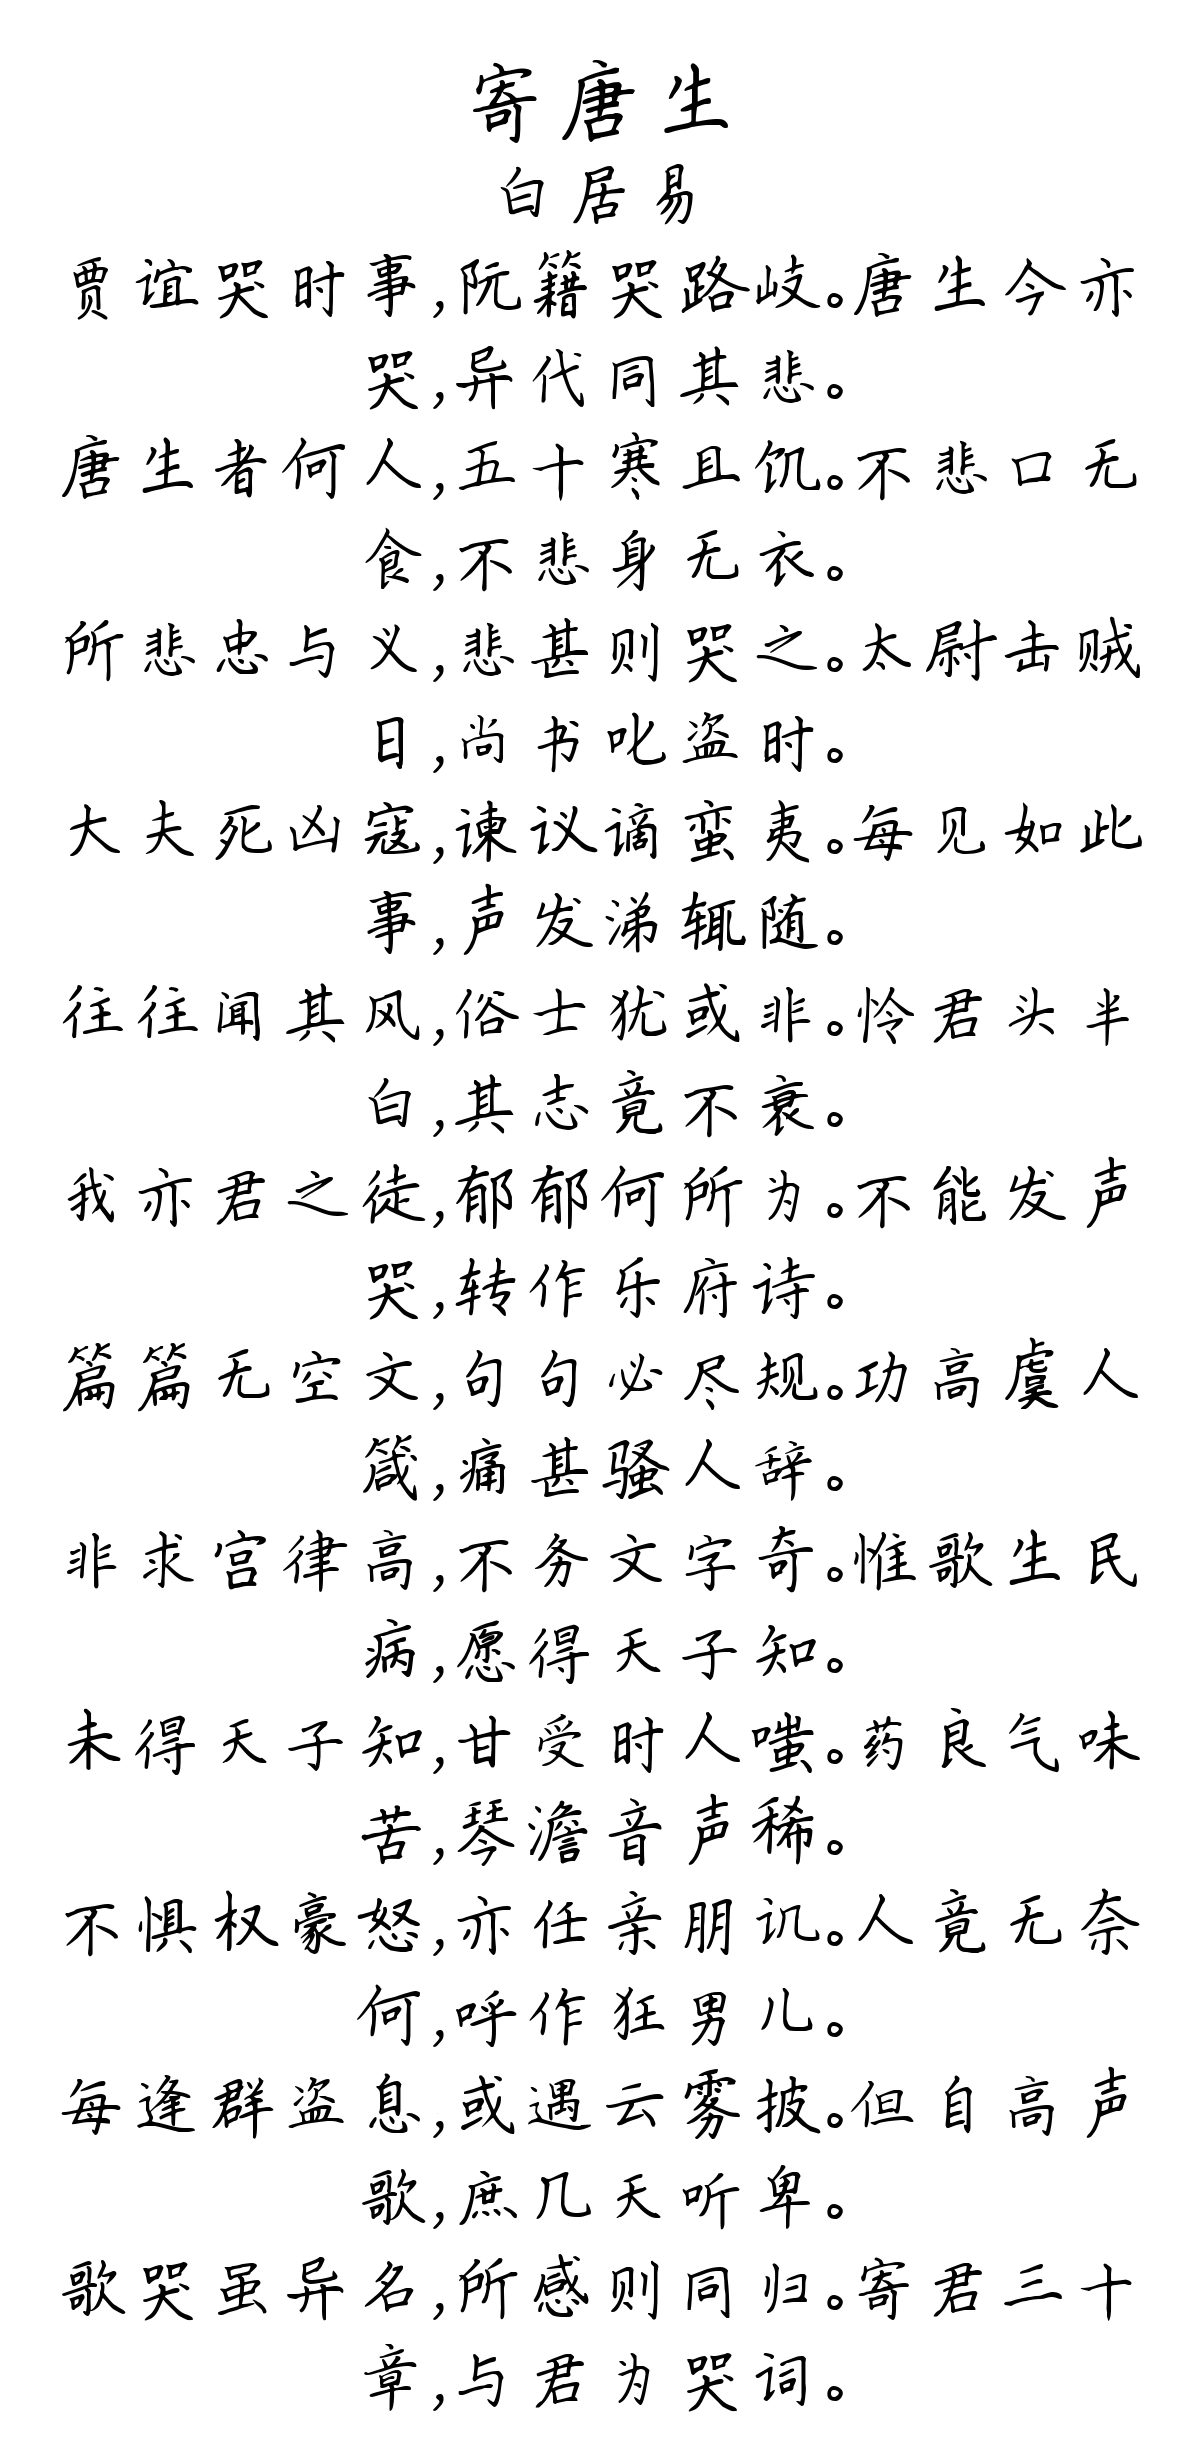 寄唐生
白居易
贾谊哭时事,阮籍哭路岐。唐生今亦
哭,异代同其悲。
唐生者何人,五十寒且饥。不悲口无
食,不悲身无衣。
所悲忠与义,悲甚则哭之。太尉击贼
日,尚书叱盗时。
大夫死凶寇,谏议谪蛮夷。每见如此
事,声发涕辄随。
往往闻其风,俗士犹或非。怜君头半
白,其志竟不衰。
我亦君之徒,郁郁何所为。不能发声
哭,转作乐府诗。
篇篇无空文,句句必尽规。功高虞人
箴,痛甚骚人辞。
非求宫律高,不务文字奇。惟歌生民
病,愿得天子知。
未得天子知,甘受时人嗤。药良气味
苦,琴澹音声稀。
不惧权豪怒,亦任亲朋讥。人竟无奈
何,呼作狂男儿。
每逢群盗息,或遇云雾披。但自高声
歌,庶几天听卑。
歌哭虽异名,所感则同归。寄君三十
章,与君为哭词。